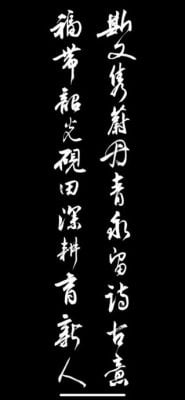 斯文隽蔚丹青永留诗古意
稿带韶光砚田深耕育新人